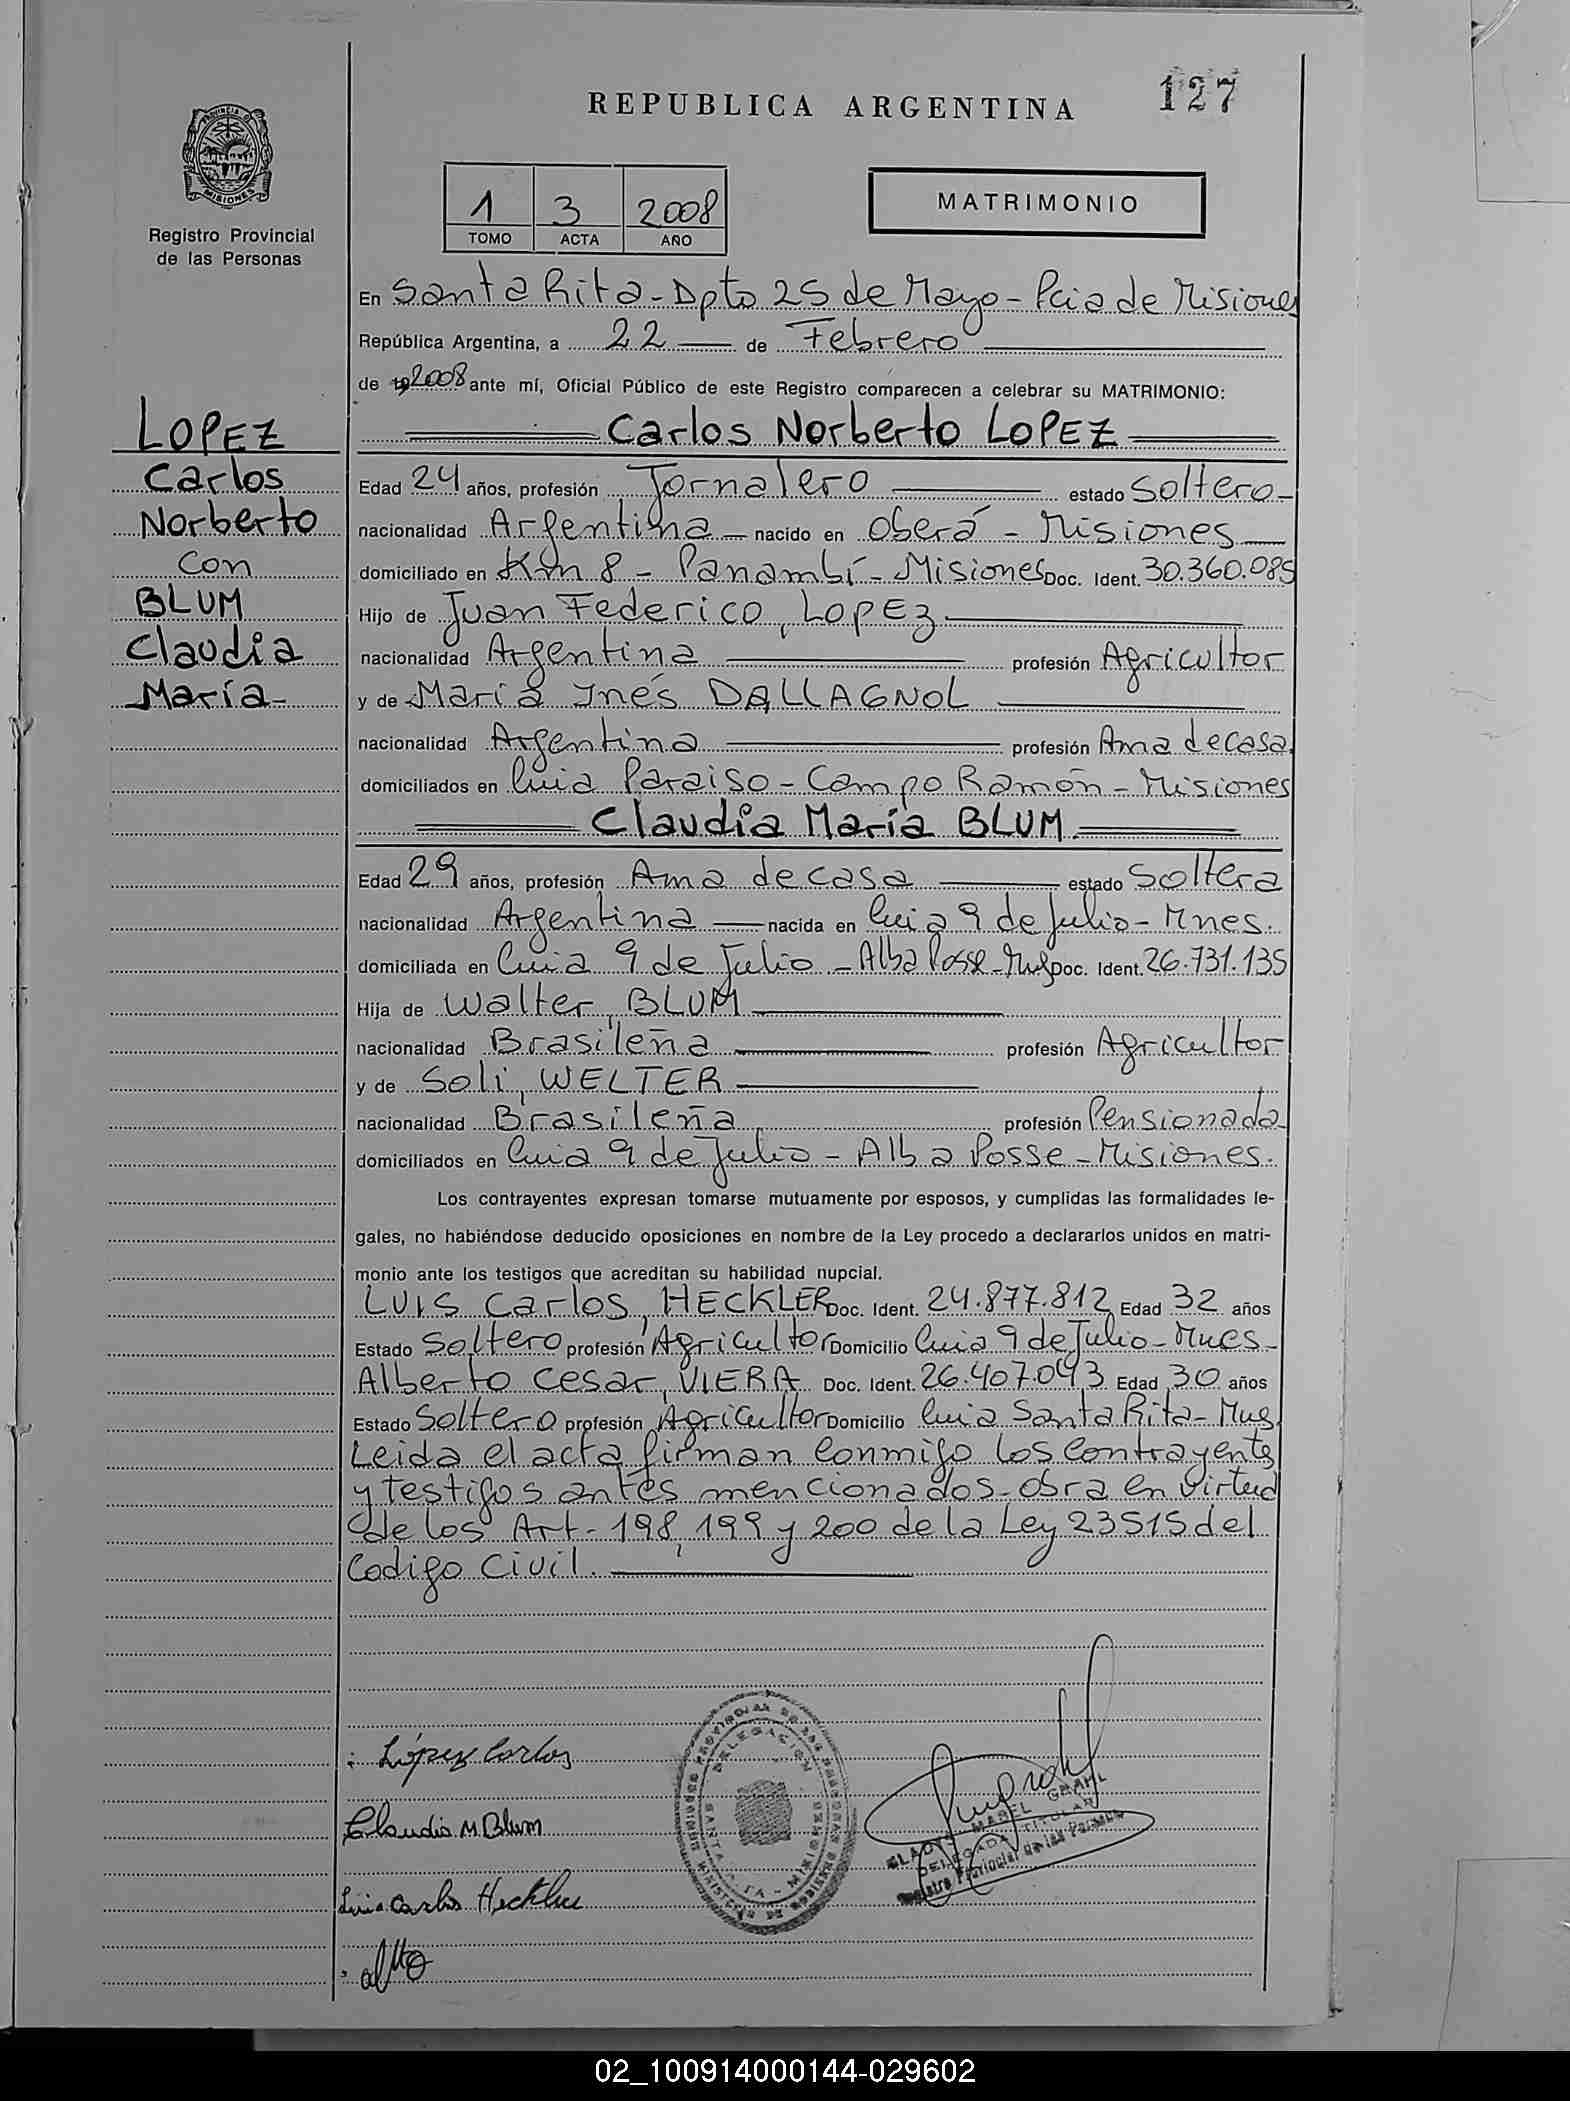 REPUBLICA ARGENTINA
127
PROVINCIA DE
MISIONES
Registro Provincial
de las Personas
1 3 2008
TOMO ACTA AÑO
MATRIMONIO
En Santa Rita - Dpto 25 de Mayo - Pcia de Misiones
República Argentina, a 22 de Febrero
de 19 2008 ante mí, Oficial Público de este Registro comparecen a celebrar su MATRIMONIO:
LOPEZ
Carlos
Norberto
Con
BLUM
Claudia
María-
Carlos Norberto LOPEZ
Edad 24 años, profesión Jornalero estado Soltero-
nacionalidad Argentina nacido en Oberá - Misiones
domiciliado en Km 8 - Panambí - Misiones Doc. Ident. 30.360.085
Hijo de Juan Federico, LOPEZ
nacionalidad Argentina profesión Agricultor
y de María Inés DALLAGNOL
nacionalidad Argentina profesión Ama de casa.
domiciliados en Cnia Paraiso - Campo Ramón - Misiones
Claudia María BLUM
Edad 29 años, profesión Ama de casa estado Soltera
nacionalidad Argentina nacida en Cnia 9 de Julio - Mnes.
domiciliada en Cnia 9 de Julio - Alba Posse - Mnes Doc. Ident. 26.731.135
Hija de Walter, BLUM
nacionalidad Brasileña profesión Agricultor
y de Soli, WELTER
nacionalidad Brasileña profesión Pensionada
domiciliados en Cnia 9 de Julio - Alba Posse - Misiones.
Los contrayentes expresan tomarse mutuamente por esposos, y cumplidas las formalidades le-
gales, no habiéndose deducido oposiciones en nombre de la Ley procedo a declararlos unidos en matri-
monio ante los testigos que acreditan su habilidad nupcial.
LUIS Carlos, HECKLER Doc. Ident. 24.877.812 Edad 32 años
Estado Soltero profesión Agricultor Domicilio Cnia 9 de Julio - Mnes-
Alberto Cesar, VIERA Doc. Ident. 26.407.043 Edad 30 años
Estado Soltero profesión Agricultor Domicilio Cnia Santa Rita - Mnes.
Leida el acta firman conmigo los contrayentes
y testigos antes mencionados - obra en virtud
de los Art - 198, 199 y 200 de la Ley 23515 del
Codigo Civil.
López Carlos
Claudia M Blum
Luis Carlos Heckler
DELEGACION
SANTA RITA - MISIONES
GLADYS MABEL GRAHL
DELEGADA TITULAR
Registro Provincial de las Personas
02_100914000144-029602